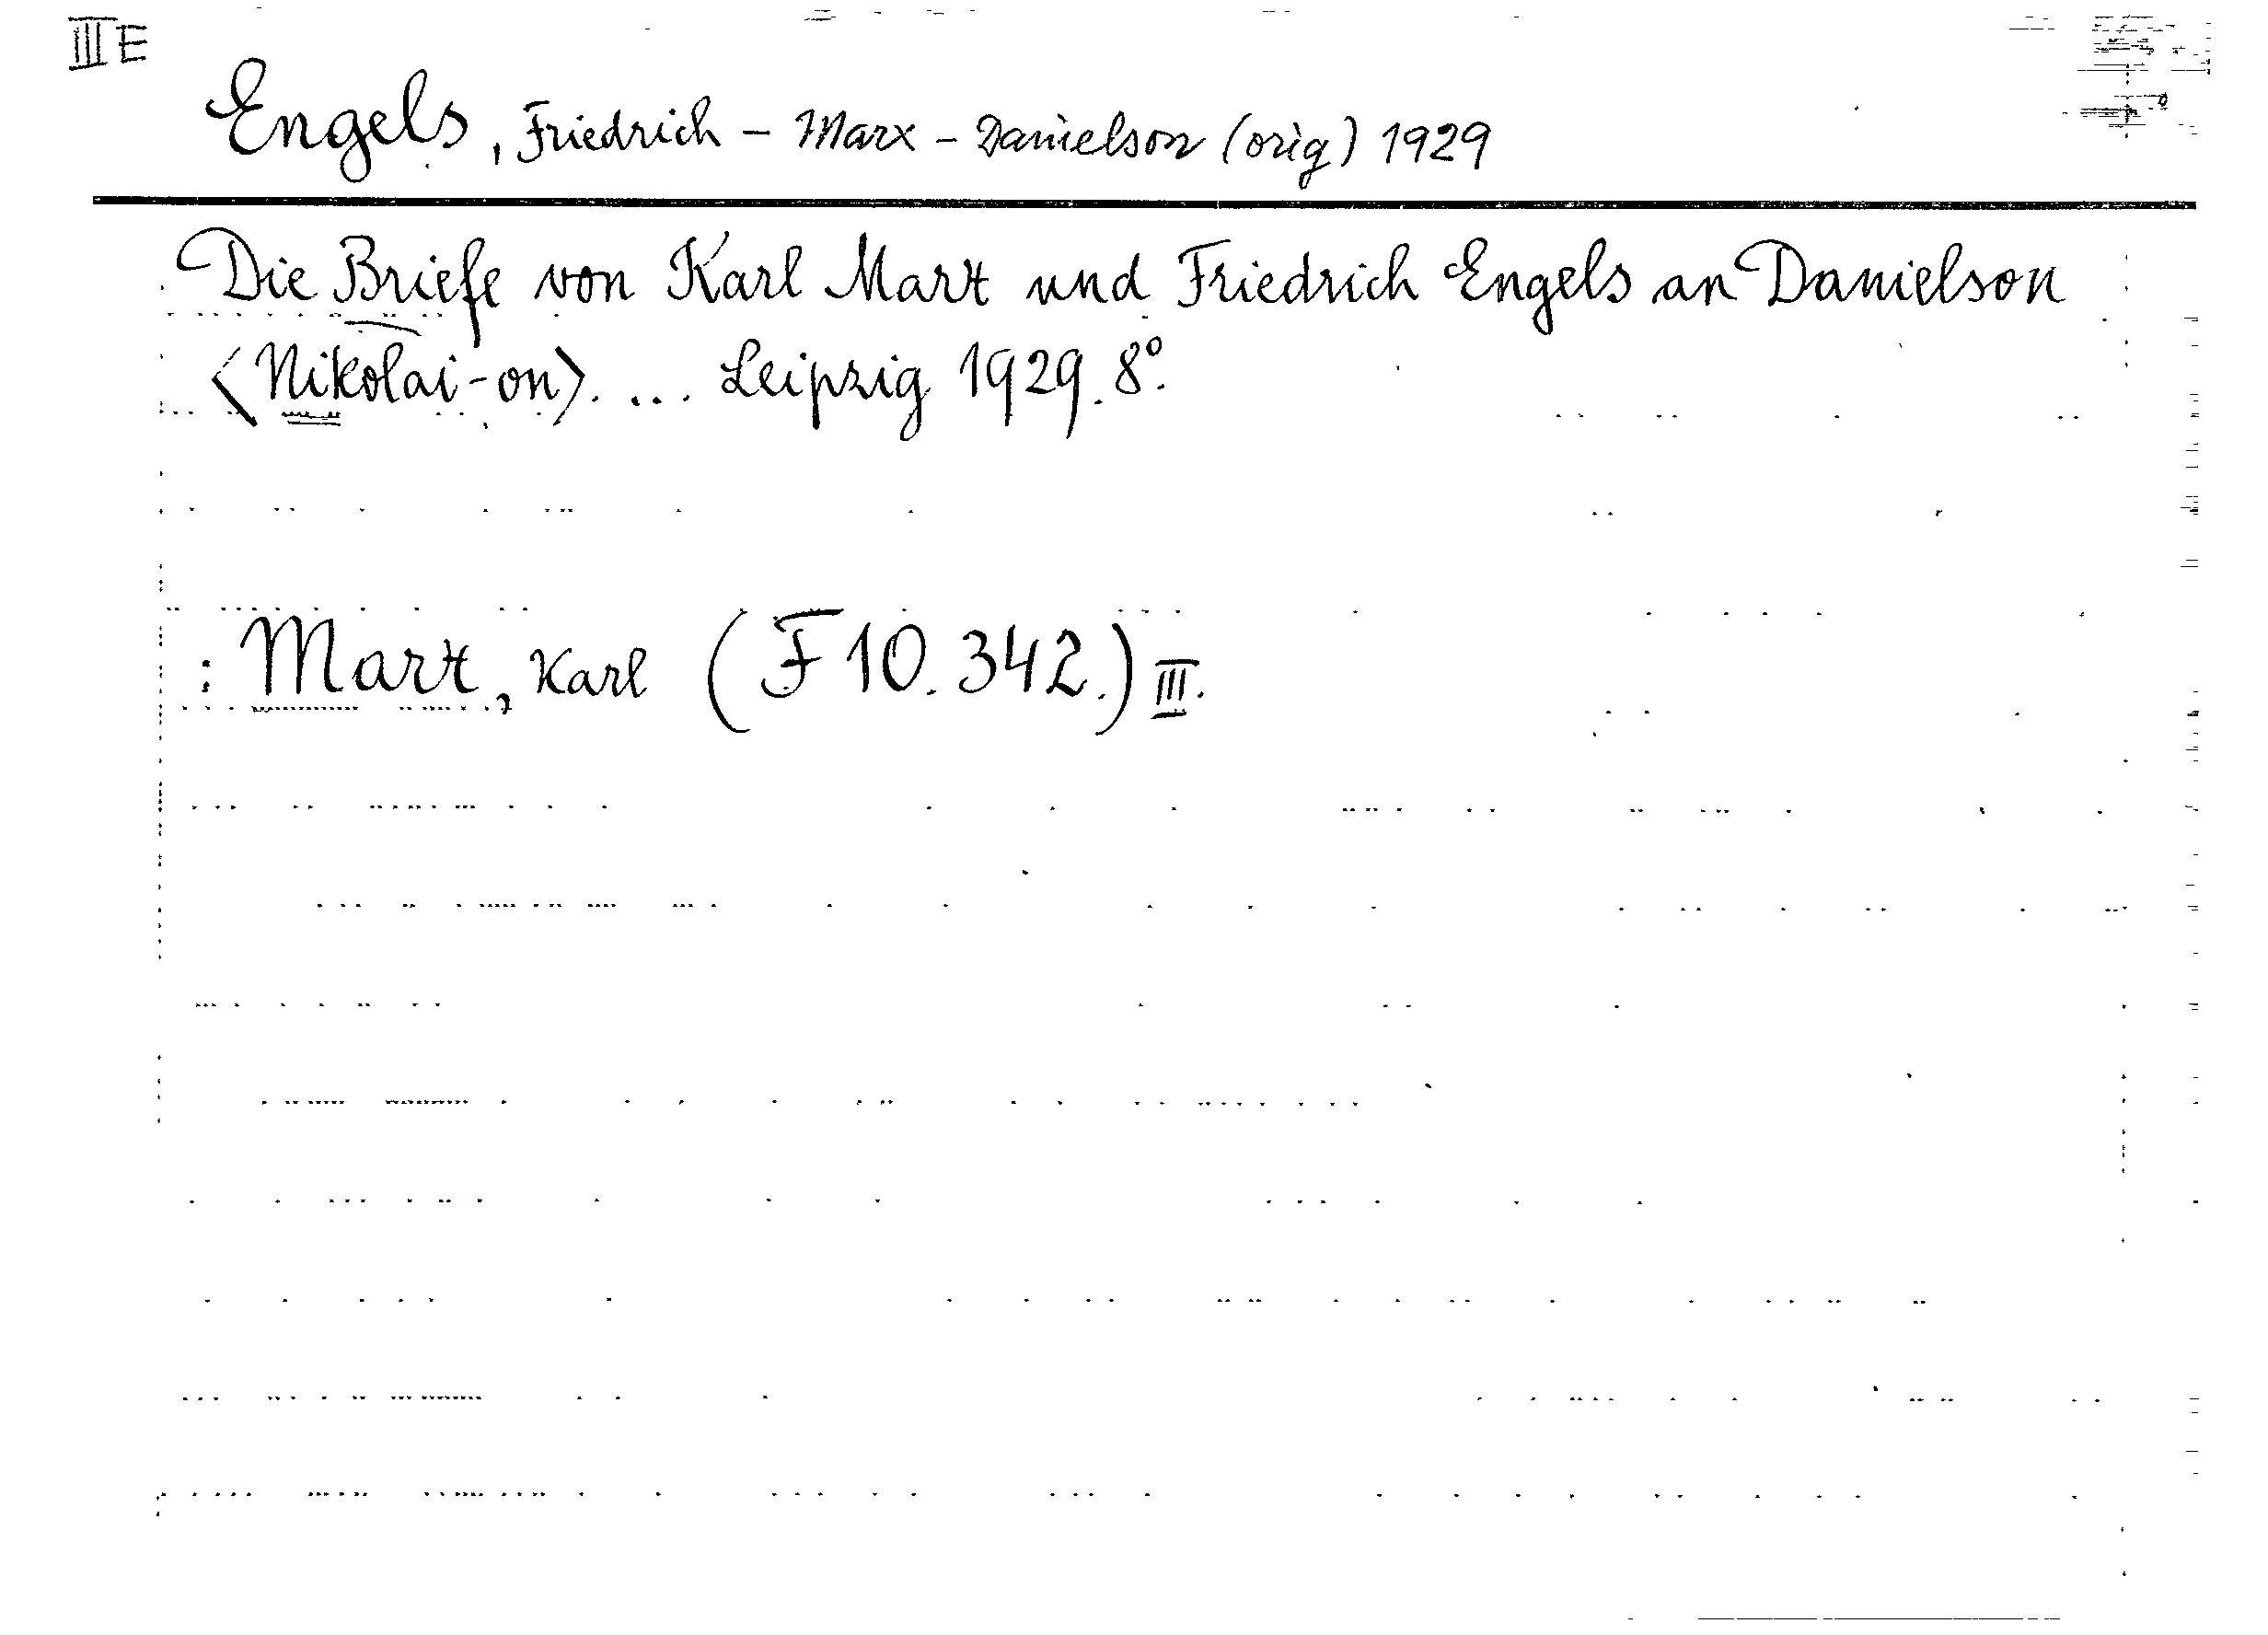 III E
Engels, Friedrich – Marx – Danielson (orig) 1929
Die Briefe von Karl Marx und Friedrich Engels an Danielson
<Nikolai-on>. ... Leipzig 1929. 8°.
: Marx, Karl (F 10.342.) III.